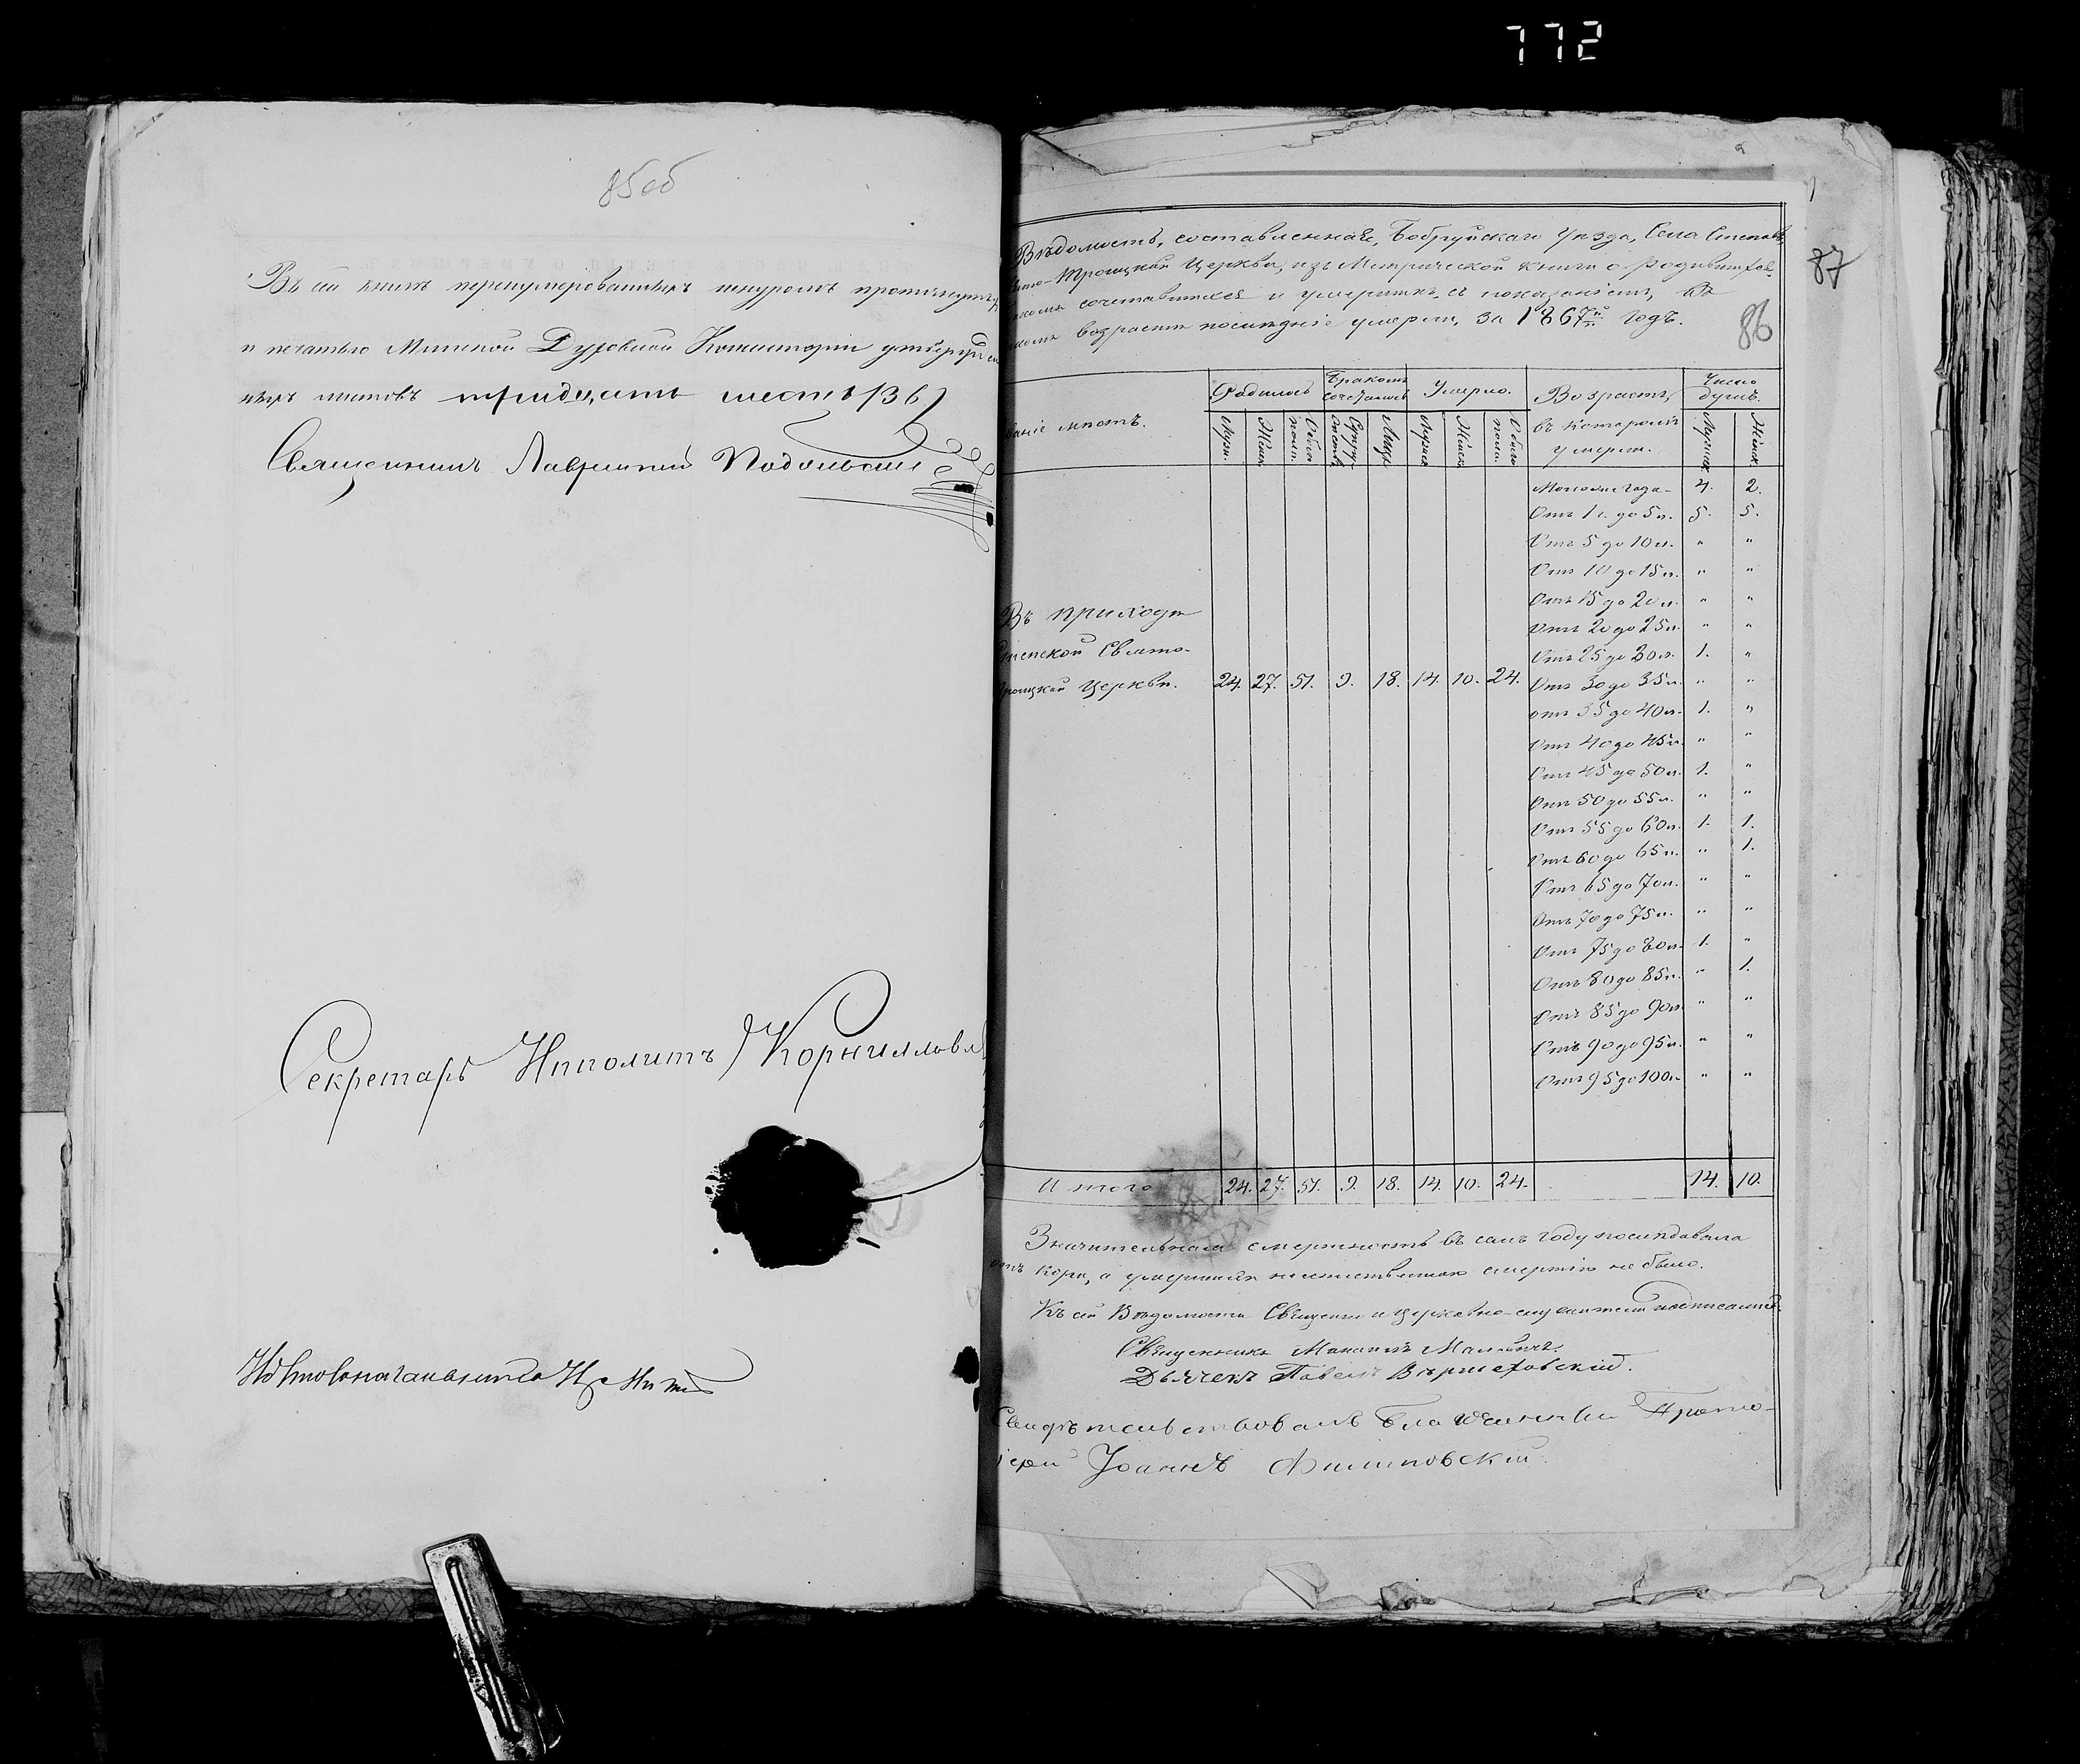 772
85об
Въ сей книгѣ перенумерованныхъ шнуромъ
и печатью Минской Духовной Консисторіи
листовъ тридцать шесть /36/
Священникъ Лаврентій Подольскій
Секретарь Ипполитъ Корниловъ
87
86
Вѣдомость, составленная, Бобруйскаго уѣзда, Села
Троицкой Церкви, изъ Метрической книги о родившихся,
сочетавшихся и умершихъ, съ показаніемъ, въ
возрастѣ послѣдніе умерли, за 1867й годъ.
мѣстъ.
Родилось
Бракомъ сочеталось
Умерло.
Возрастъ, въ которомъ умерли.
Число душъ.
Мужс. Женс. Обоего полу. Супружествъ Лицъ Мужск. Женск. Обоего полу. Мужск. Женск.
Моложе года - 4. 2.
Отъ 1 г. до 5 л. 5. 5.
Отъ 5 до 10 л. " "
Отъ 10 до 15 л. " "
Отъ 15 до 20 л. " "
Отъ 20 до 25 л. " "
Отъ 25 до 30 л. 1. "
Отъ 30 до 35 л. " "
отъ 35 до 40 л. 1. "
Отъ 40 до 45 л. " "
Отъ 45 до 50 л. 1. "
Отъ 50 до 55 л. " "
Отъ 55 до 60 л. 1. 1.
Отъ 60 до 65 л. " 1.
Отъ 65 до 70 л. " "
Отъ 70 до 75 л. " "
Отъ 75 до 80 л. 1. "
Отъ 80 до 85 л. " 1.
Отъ 85 до 90 л. " "
Отъ 90 до 95 л. " "
Отъ 95 до 100 л. " "
Въ приходѣ
Свято-
Троицкой Церкви. 24. 27. 51. 9. 18. 14. 10. 24.
Итого 24. 27. 51. 9. 18. 14. 10. 24. 14. 10.
Значительная смертность въ семъ году послѣдовала
отъ кори, а умершихъ неестественною смертію не было.
Къ сей Вѣдомости Священно и церковно-служители подписались.
Священникъ
Дьячекъ Павелъ
Свидѣтельствовалъ Благочинный Прото-
іерей Іоаннъ Филиповскій.